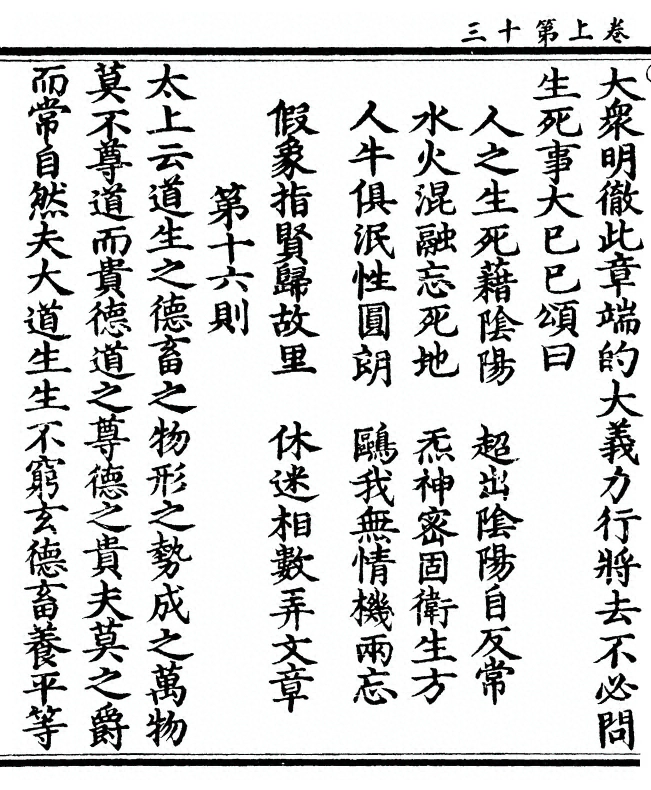 卷上第十三
大衆明徹此章端的大義力行將去不必問
生死事大巳巳頌曰
人之生死藉陰陽　超出陰陽自反常
水火混融忘死地　炁神密固衛生方
人牛俱泯性圓朗　鷗我無情機兩忘
假象指賢歸故里　休迷相數弄文章
第十六則
太上云道生之德畜之物形之勢成之萬物
莫不尊道而貴德道之尊德之貴夫莫之爵
而常自然夫大道生生不窮玄德畜養平等